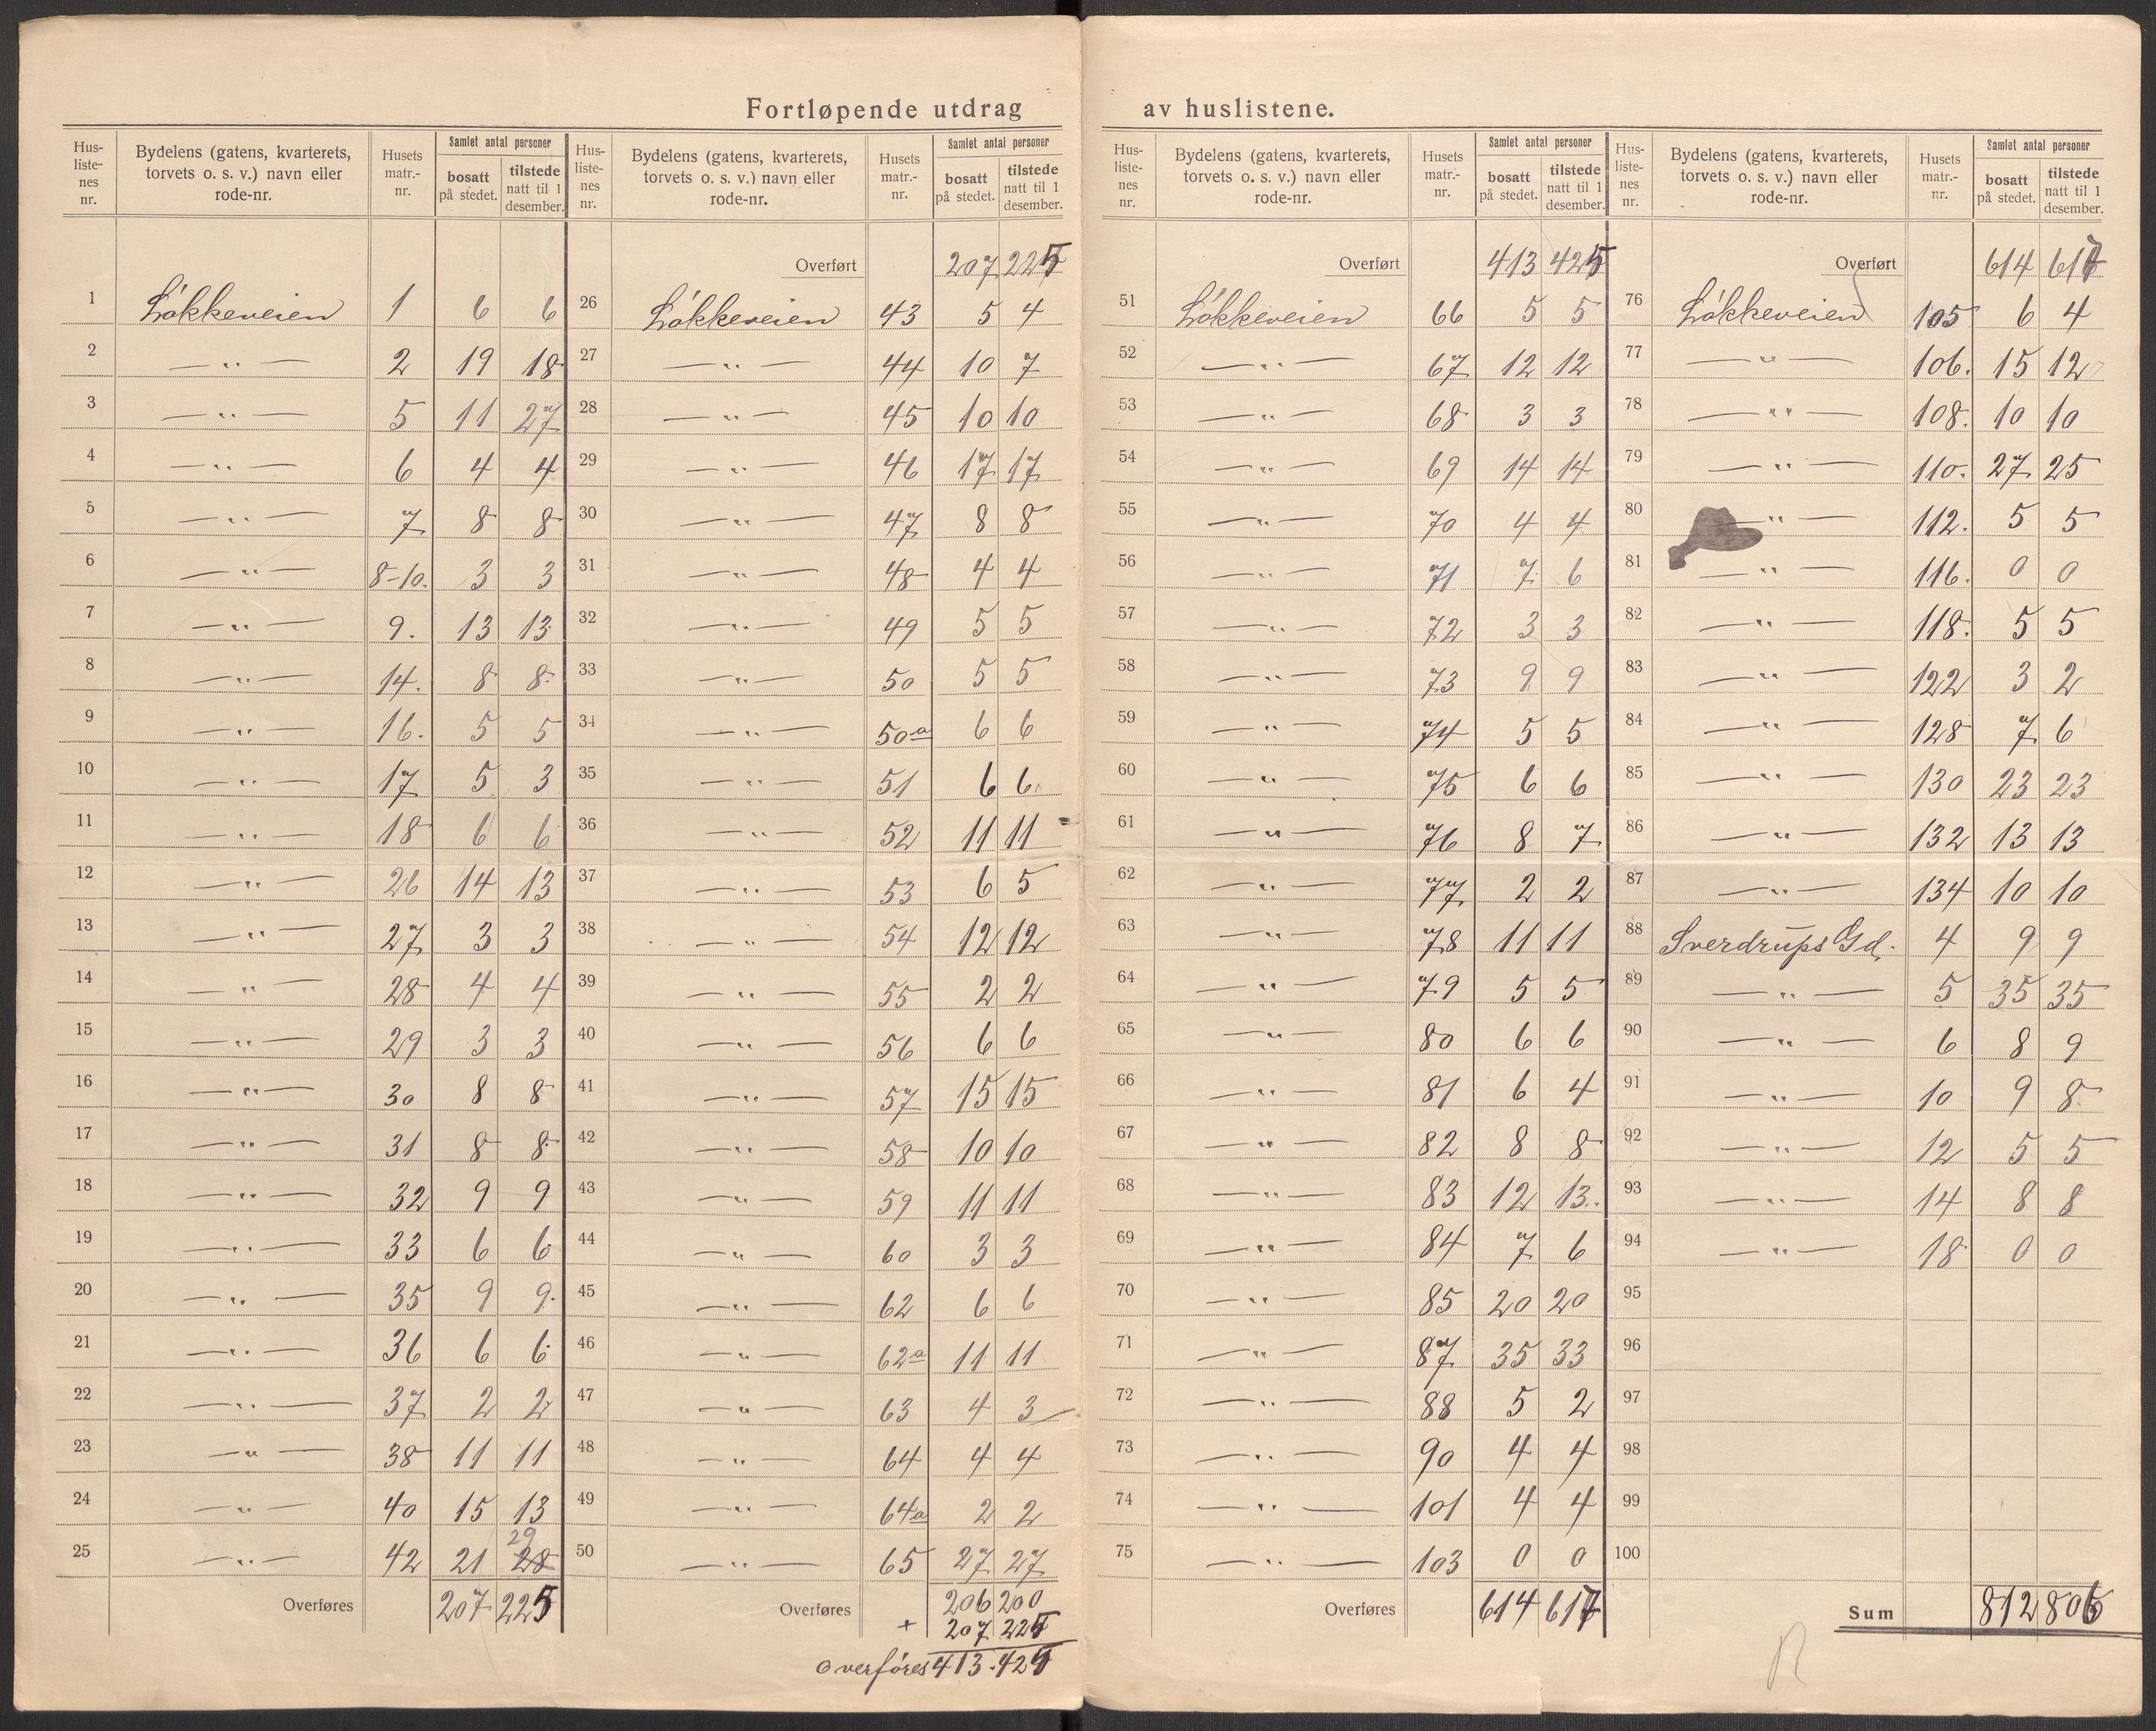 Fortløpende utdrag av huslistene.
Hus-liste-nes nr. | Bydelens (gatens, kvarterets, torvets o. s. v.) navn eller rode-nr. | Husets matr.-nr. | Samlet antal personer bosatt på stedet. | tilstede natt til 1 desember.
1 Løkkeveien 1 6 6
2 —„— 2 19 18
3 —„— 5 11 27
4 —„— 6 4 4
5 —„— 7 8 8
6 —„— 8-10. 3 3
7 —„— 9. 13 13
8 —„— 14. 8 8
9 —„— 16. 5 5
10 —„— 17 5 3
11 —„— 18 6 6
12 —„— 26 14 13
13 —„— 27 3 3
14 —„— 28 4 4
15 —„— 29 3 3
16 —„— 30 8 8
17 —„— 31 8 8
18 —„— 32 9 9
19 —„— 33 6 6
20 —„— 35 9 9
21 —„— 36 6 6
22 —„— 37 2 2
23 —„— 38 11 11
24 —„— 40 15 13
25 —„— 42 21 28 29
Overføres 207 225
Hus-liste-nes nr. | Bydelens (gatens, kvarterets, torvets o. s. v.) navn eller rode-nr. | Husets matr.-nr. | Samlet antal personer bosatt på stedet. | tilstede natt til 1 desember.
Overført 207 225
26 Løkkeveien 43 5 4
27 —„— 44 10 7
28 —„— 45 10 10
29 —„— 46 17 17
30 —„— 47 8 8
31 —„— 48 4 4
32 —„— 49 5 5
33 —„— 50 5 5
34 —„— 50a 6 6
35 —„— 51 6 6
36 —„— 52 11 11
37 —„— 53 6 5
38 —„— 54 12 12
39 —„— 55 2 2
40 —„— 56 6 6
41 —„— 57 15 15
42 —„— 58 10 10
43 —„— 59 11 11
44 —„— 60 3 3
45 —„— 62 6 6
46 —„— 62a 11 11
47 —„— 63 4 3
48 —„— 64 4 4
49 —„— 64a 2 2
50 —„— 65 27 27
Overføres 206 200
+ 207 225
Overføres 413. 425
Hus-liste-nes nr. | Bydelens (gatens, kvarterets, torvets o. s. v.) navn eller rode-nr. | Husets matr.-nr. | Samlet antal personer bosatt på stedet. | tilstede natt til 1 desember.
Overført 413 425
51 Løkkeveien 66 5 5
52 —„— 67 12 12
53 —„— 68 3 3
54 —„— 69 14 14
55 —„— 70 4 4
56 —„— 71 7 6
57 —„— 72 3 3
58 —„— 73 9 9
59 —„— 74 5 5
60 —„— 75 6 6
61 —„— 76 8 7
62 —„— 77 2 2
63 —„— 78 11 11
64 —„— 79 5 5
65 —„— 80 6 6
66 —„— 81 6 4
67 —„— 82 8 8
68 —„— 83 12 13
69 —„— 84 7 6
70 —„— 85 20 20
71 —„— 87 35 33
72 —„— 88 5 2
73 —„— 90 4 4
74 —„— 101 4 4
75 —„— 103 0 0
Overføres 614 617
Hus-liste-nes nr. | Bydelens (gatens, kvarterets, torvets o. s. v.) navn eller rode-nr. | Husets matr.-nr. | Samlet antal personer bosatt på stedet. | tilstede natt til 1 desember.
Overført 614 617
76 Løkkeveien 105 6 4
77 —„— 106. 15 12
78 —„— 108. 10 10
79 —„— 110. 27 25
80 —„— 112. 5 5
81 —„— 116. 0 0
82 —„— 118. 5 5
83 —„— 122 3 2
84 —„— 128 7 6
85 —„— 130 23 23
86 —„— 132 13 13
87 —„— 134 10 10
88 Sverdrups Gd. 4 9 9
89 —„— 5 35 35
90 —„— 6 8 9
91 —„— 10 9 8
92 —„— 12 5 5
93 —„— 14 8 8
94 —„— 18 0 0
95
96
97
98
99
100
Sum 812 806